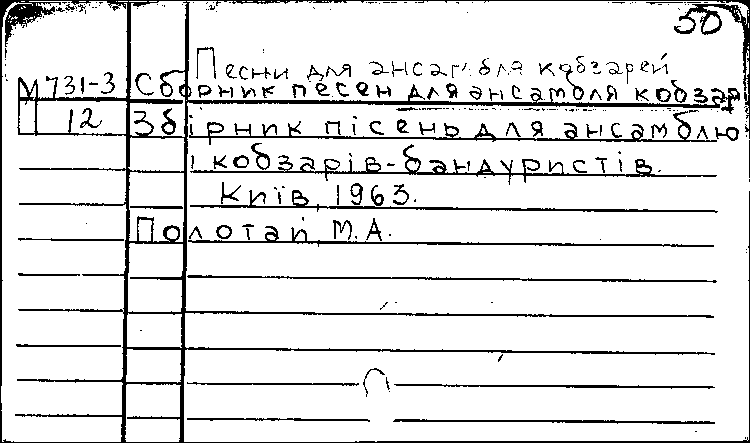 50
Песни для ансамбля кобзарей
М731-3 Сборник песен для ансамбля кобзар
12 Збірник пісень для ансамблю
і кобзарів-бандуристів.
Київ, 1963.
Полотай, М.А.